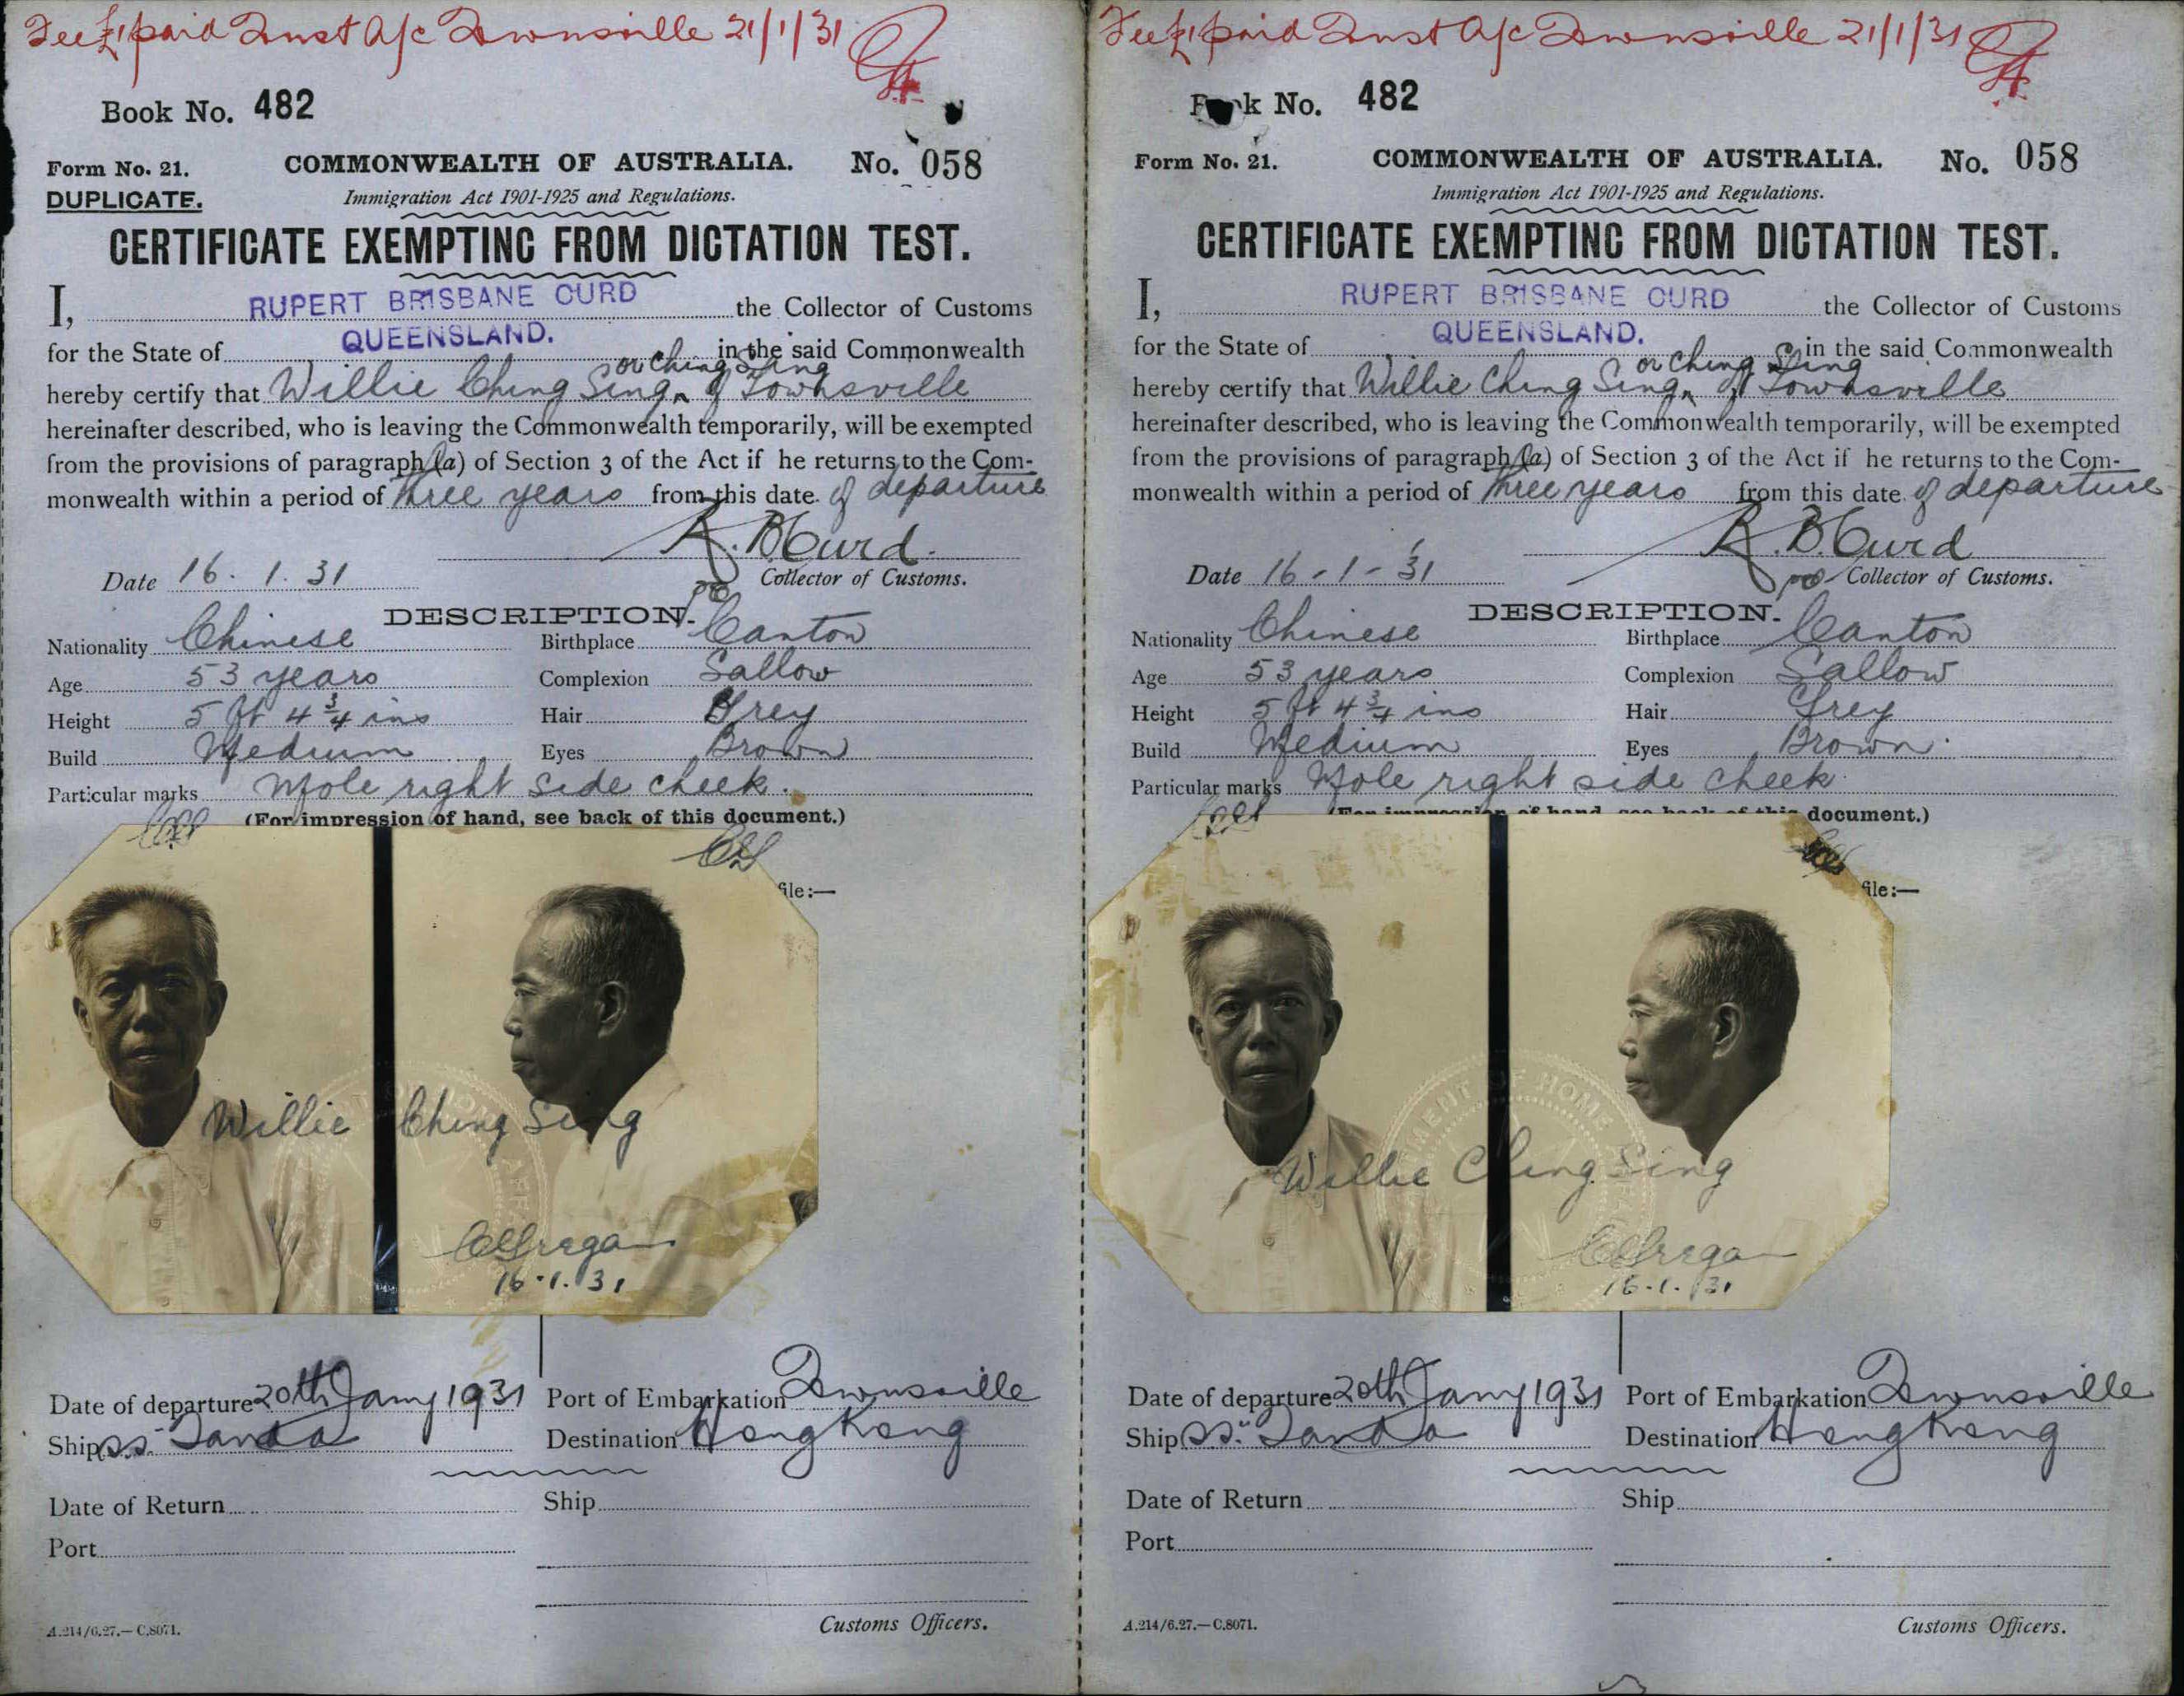 Fee £1 paid Trust A/c Townsville 21/1/31
Book No. 482
Form No. 21. COMMONWEALTH OF AUSTRALIA. No. 058
DUPLICATE. Immigration Act 1901-1925 and Regulations.
CERTIFICATE EXEMPTING FROM DICTATION TEST.
I, RUPERT BRISBANE CURD the Collector of Customs
for the State of QUEENSLAND. in the said Commonwealth
or Ching Sing
hereby certify that Willie Ching Sing of Townsville
hereinafter described, who is leaving the Commonwealth temporarily, will be exempted
from the provisions of paragraph (a) of Section 3 of the Act if he returns to the Com-
monwealth within a period of three years from this date of departure
R. B. Curd.
Date 16. 1. 31 Collector of Customs.
DESCRIPTION.
Nationality Chinese Birthplace Canton
Age 53 years Complexion Sallow
Height 5 ft 4 3/4 ins Hair Grey
Build Medium Eyes Brown
Particular marks Mole right side cheek.
(For impression of hand, see back of this document.)
file:—
Willie Ching Sing
16.1.31
Date of departure 20th Jany 1931 Port of Embarkation Townsville
Ship SS. Tanda Destination Hong Kong
Date of Return Ship
Port
A.214/6.27.—C.8071. Customs Officers.
Fee £1 paid Trust A/c Townsville 21/1/31
Book No. 482
Form No. 21. COMMONWEALTH OF AUSTRALIA. No. 058
Immigration Act 1901-1925 and Regulations.
CERTIFICATE EXEMPTING FROM DICTATION TEST.
I, RUPERT BRISBANE CURD the Collector of Customs
for the State of QUEENSLAND. in the said Commonwealth
or Ching Sing
hereby certify that Willie Ching Sing of Townsville
hereinafter described, who is leaving the Commonwealth temporarily, will be exempted
from the provisions of paragraph (a) of Section 3 of the Act if he returns to the Com-
monwealth within a period of three years from this date of departure
R. B. Curd
Date 16-1-31 Collector of Customs.
DESCRIPTION.
Nationality Chinese Birthplace Canton
Age 53 years Complexion Sallow
Height 5 ft 4 3/4 ins Hair Grey
Build Medium Eyes Brown.
Particular marks Mole right side cheek.
(For impression of hand, see back of this document.)
file:—
Willie Ching Sing
16.1.31
Date of departure 20th Jany 1931 Port of Embarkation Townsville
Ship SS. Tanda Destination Hong Kong
Date of Return Ship
Port
A.214/6.27.—C.8071. Customs Officers.